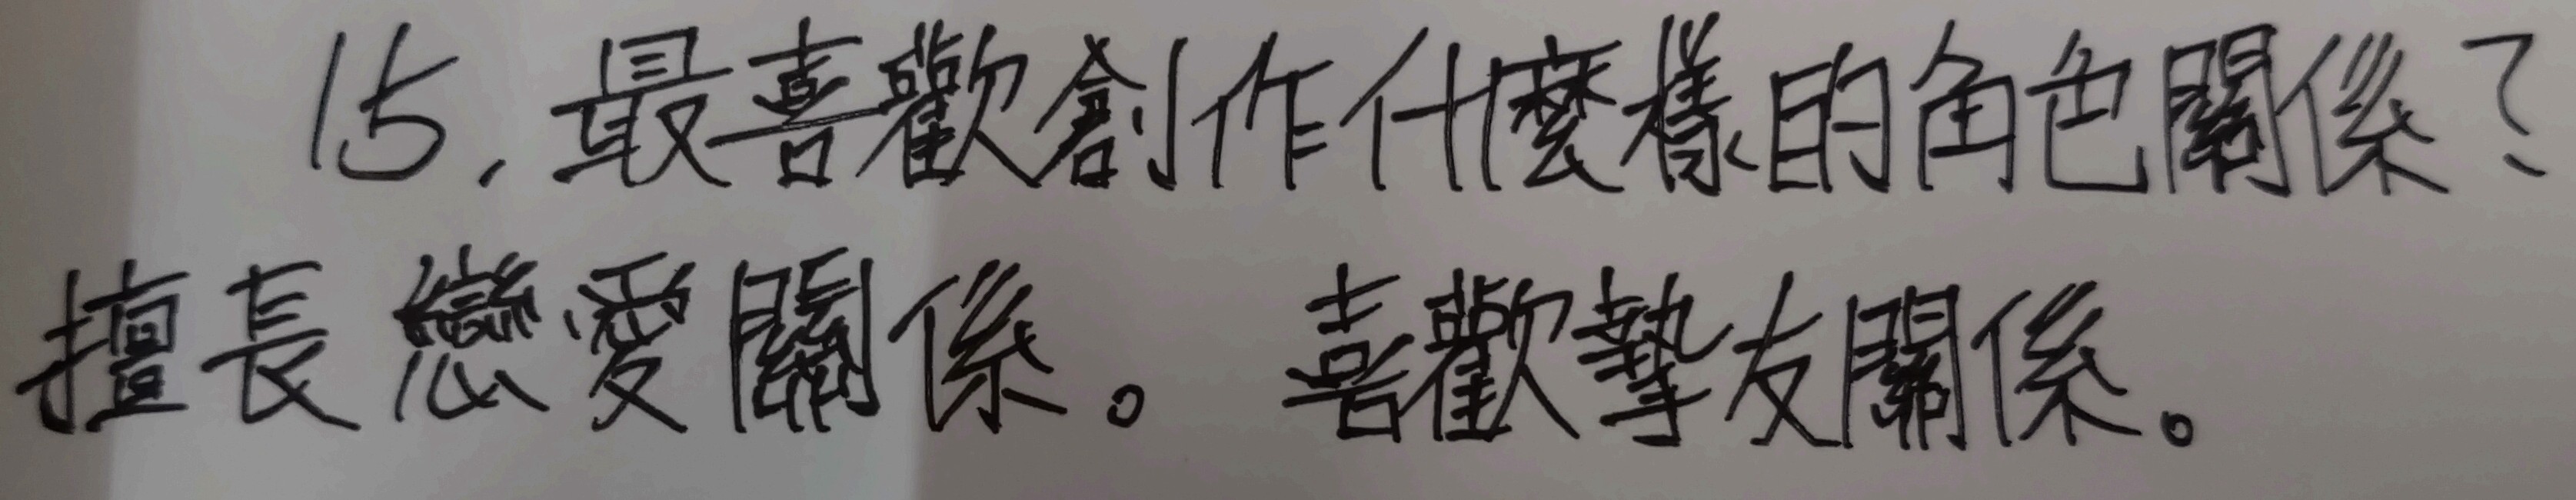 15.最喜歡創作什麼樣的角色關係?
擅長戀愛關係。喜歡摯友關係。